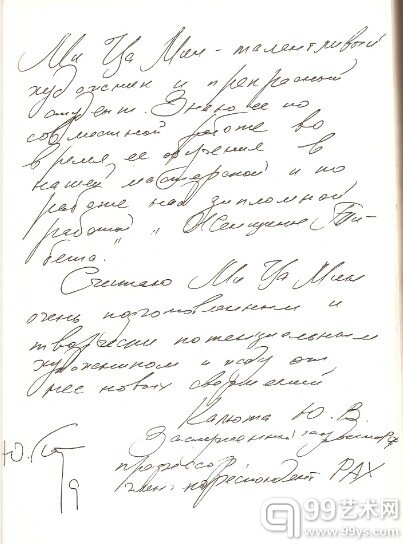 Ми Ца Мин - талантливый
художник и прекрасный
студент. Знаю ее по
совместной работе во
время ее обучения в
нашей мастерской и по
работе над дипломной
работой „Женщины Ти-
бета."
Считаю Ми Ца Мин
очень подготовленным и
творчески потенциальным
художником и жду от
нее новых свершений
Калюта Ю. В.
Заслуженный художник РФ
профессор
член-корреспондент РАХ
Ю. К
99艺术网
www.99ys.com